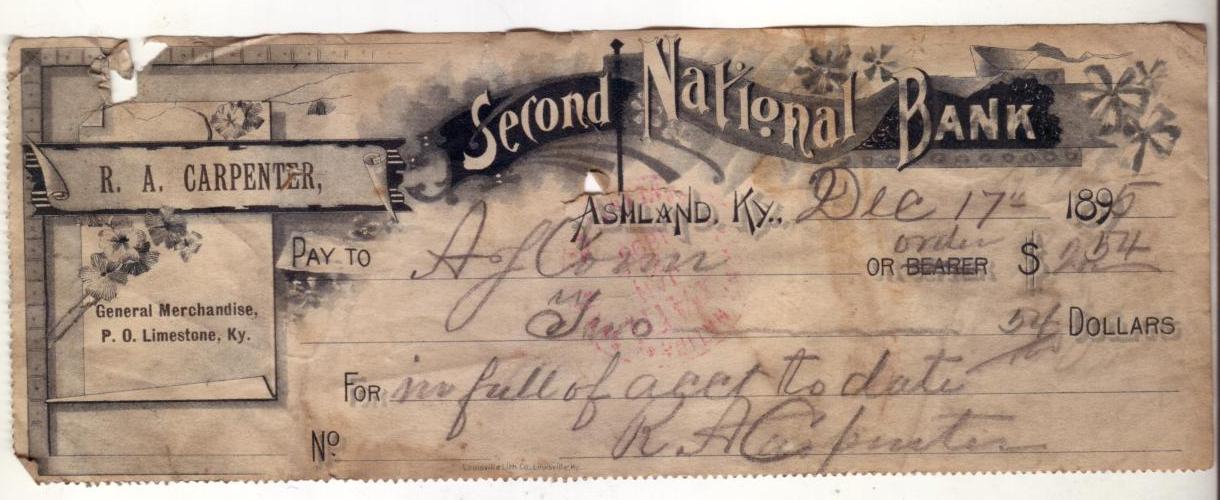 Second National Bank
R. A. CARPENTER,
ASHLAND, KY., Dec 17th 1895
PAY TO A J Conn order OR BEARER $ 2 54
Two 54 DOLLARS
General Merchandise,
P. O. Limestone, Ky.
FOR in full of acct to date
R A Carpenter
No.
Louisville Lith Co., Louisville Ky.